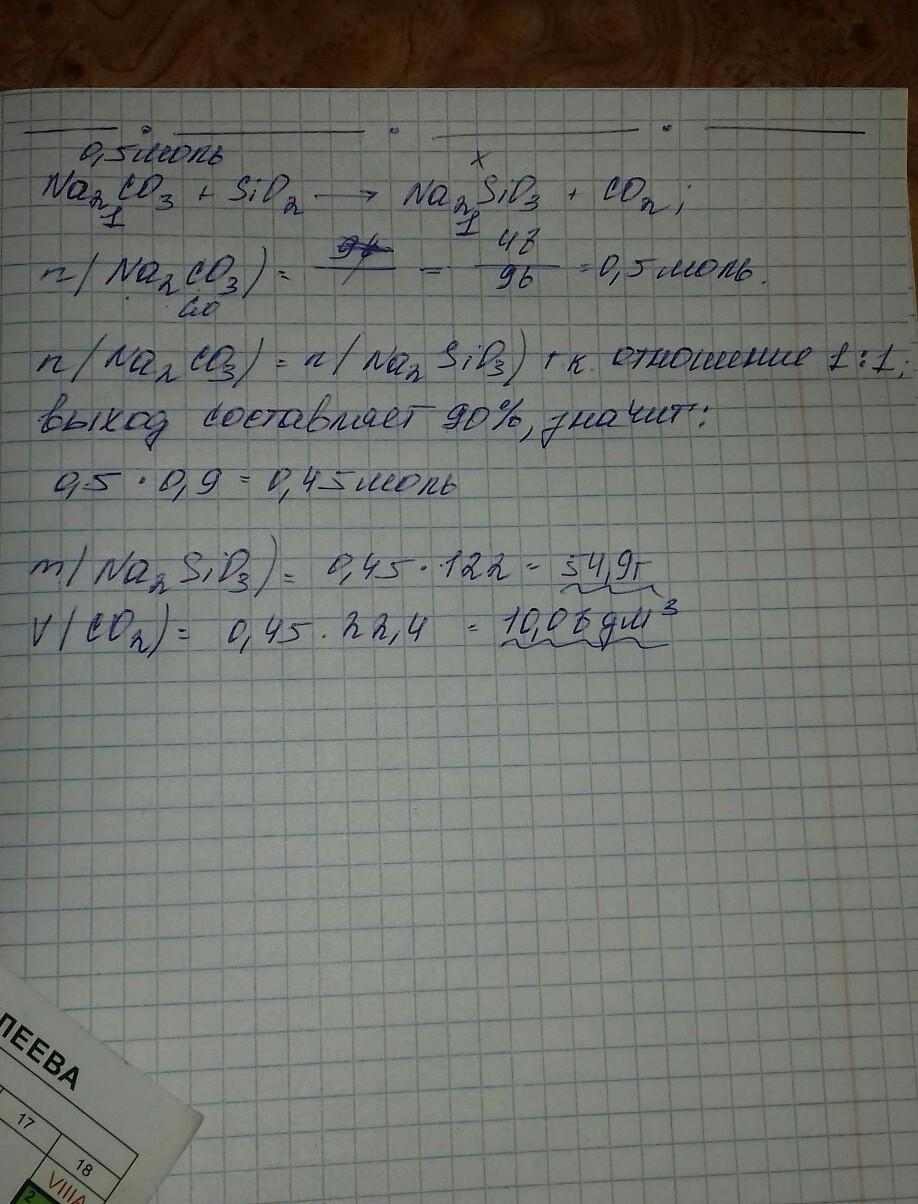 0,5 моль
x
Na₂CO₃ + SiO₂ → Na₂SiO₃ + CO₂;
1 1
n(Na₂CO₃) = = 48/96 = 0,5 моль.
n(Na₂CO₃) = n(Na₂SiO₃) т.к. отношение 1:1;
выход составляет 90%, значит:
0,5 · 0,9 = 0,45 моль
m(Na₂SiO₃) = 0,45 · 122 = 54,9г
V(CO₂) = 0,45 · 22,4 = 10,08 дм³
ЛЕЕВА
17
18
VIIIA
2